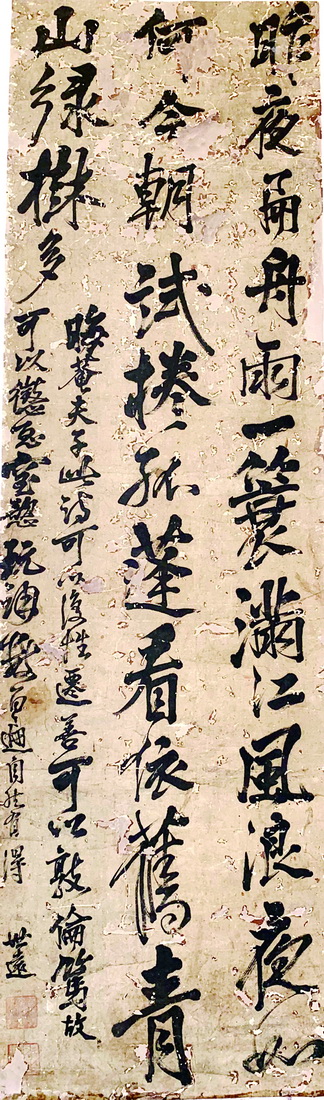 昨夜扁舟雨一簑滿江風浪夜如
何今朝試捲孤蓬看依舊青
山綠樹多
晦菴夫子此詩可以復性遷善可以敦倫篤故
可以懲忿窒慾玩誦數百遍自然有得
世遠